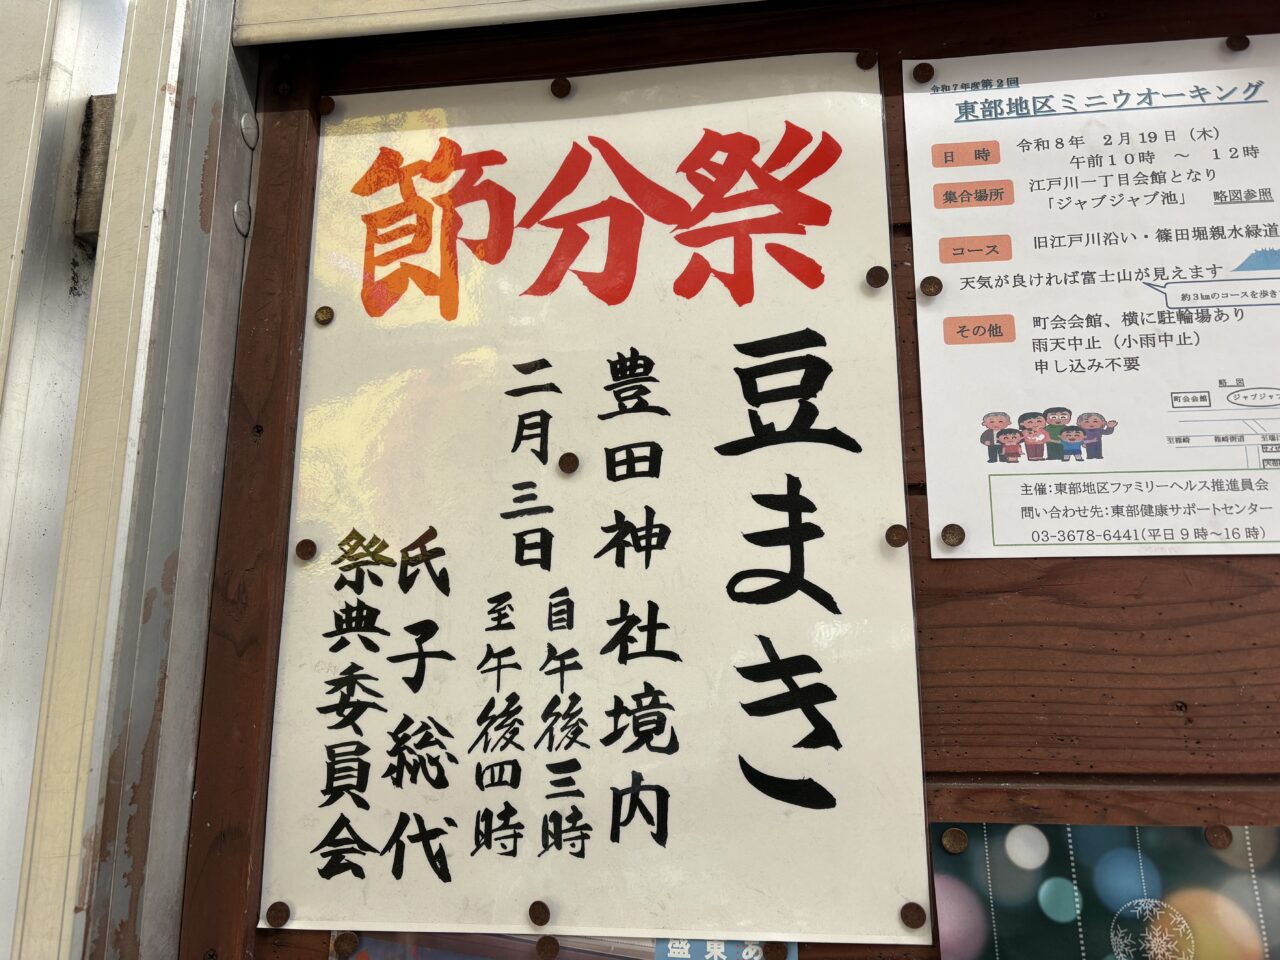 節分祭
豆まき
豊田神社境内
二月三日
自午後三時
至午後四時
氏子総代
祭典委員会
令和7年度第2回
東部地区ミニウオーキング
日時
令和8年 2月19日(木)
午前10時 ～ 12時
集合場所
江戸川一丁目会館となり
「ジャブジャブ池」 略図参照
コース
旧江戸川沿い・篠田堀親水緑道
天気が良ければ富士山が見えます
約3㎞のコースを歩き
その他
町会会館、横に駐輪場あり
雨天中止(小雨中止)
申し込み不要
略 図
町会会館
ジャブジャブ
至篠崎
篠崎街道
主催:東部地区ファミリーヘルス推進員会
問い合わせ先:東部健康サポートセンター
03-3678-6441(平日9時～16時)
盛東あ